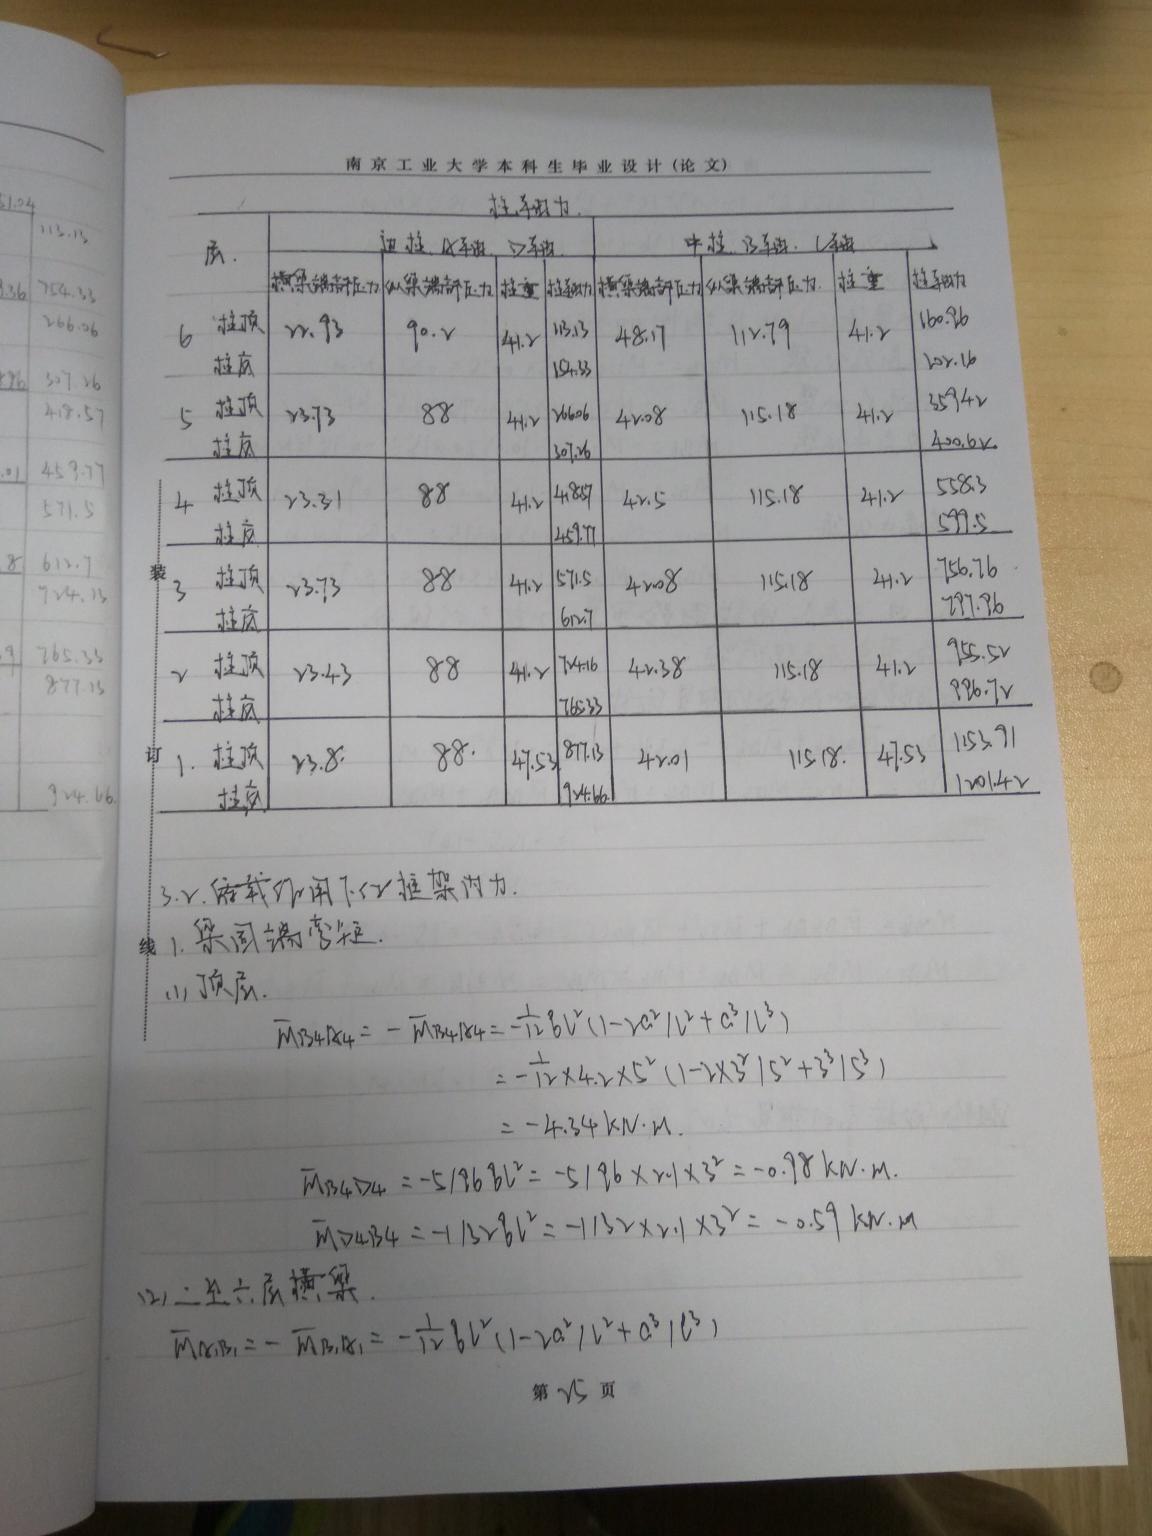 南京工业大学本科生毕业设计(论文)
柱轴力.
层. 边柱 A轴. D轴. 中柱 B轴. C轴
横梁端部压力 纵梁端部压力 柱重 柱轴力 横梁端部压力 纵梁端部压力. 柱重 柱轴力
6 柱顶 22.93 90.2 41.2 113.13 48.17 112.79 41.2 160.96
柱底 154.33 202.16
5 柱顶 23.73 88 41.2 266.06 42.08 115.18 41.2 359.42
柱底 307.26 400.62
4 柱顶 23.31 88 41.2 418.57 42.5 115.18 41.2 558.3
柱底 459.77 599.5
3 柱顶 23.73 88 41.2 571.5 42.08 115.18 41.2 756.76
柱底 612.7 797.96
2 柱顶 23.43 88 41.2 724.16 42.38 115.18 41.2 955.52
柱底 765.33 996.72
1. 柱顶 23.8. 88. 47.53 877.13 42.01 115.18. 47.53 1153.91
柱底 924.66 1201.42
装
订
线
3.2. 活载作用下的框架内力.
1. 梁固端弯矩.
(1) 顶层.
M̄B4A4 = -M̄B4A4 = -1/12 ql²(1-2a²/l²+a³/l³)
= -1/12×4.2×5²(1-2×3²/5²+3³/5³)
= -4.34 kN·M.
M̄B4D4 = -5/96ql² = -5/96×2.1×3² = -0.98 kN·M.
M̄D4B4 = -1/32ql² = -1/32×2.1×3² = -0.59 kN·M
(2) 二至六层横梁.
M̄A1B1 = -M̄B1A1 = -1/12 ql²(1-2a²/l²+a³/l³)
第 25 页
113.13
754.33
266.06
307.26
418.57
459.77
571.5
612.7
724.13
765.33
877.13
924.66